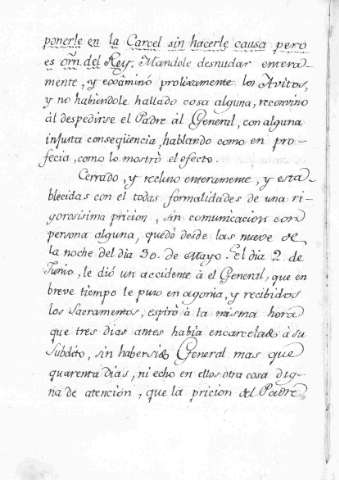 ponerle en la Carcel sin hacerle causa pero
es orn. del Rey; Mandole desnudar entera-
mente, y examinò prolixamente los Avitos,
y no habiendole hallado cosa alguna, reconvino
àl despedirse el Padre àl General, con alguna
injusta conseqüencia, hablando como en pro-
fecia, como lo mostrò el efecto.
Cerrado, y recluso enteramente, y esta-
blecidas con el todas formalidades de una ri-
gorosisima pricion, sin comunicacion con
persona alguna, quedò desde las nueve de
la noche del dia 30. de Mayo. El dia 2. de
Junio, le diò un accidente à el General, que en
breve tiempo le puso en agonia, y recibidos
los Sacramentos, espirò à la misma hora
que tres dias antes habia encarcelado à su
Subdito, sin haber sido General mas que
quarenta dias, ni echo en ellos otra cosa dig-
na de atención, que la pricion del Padre